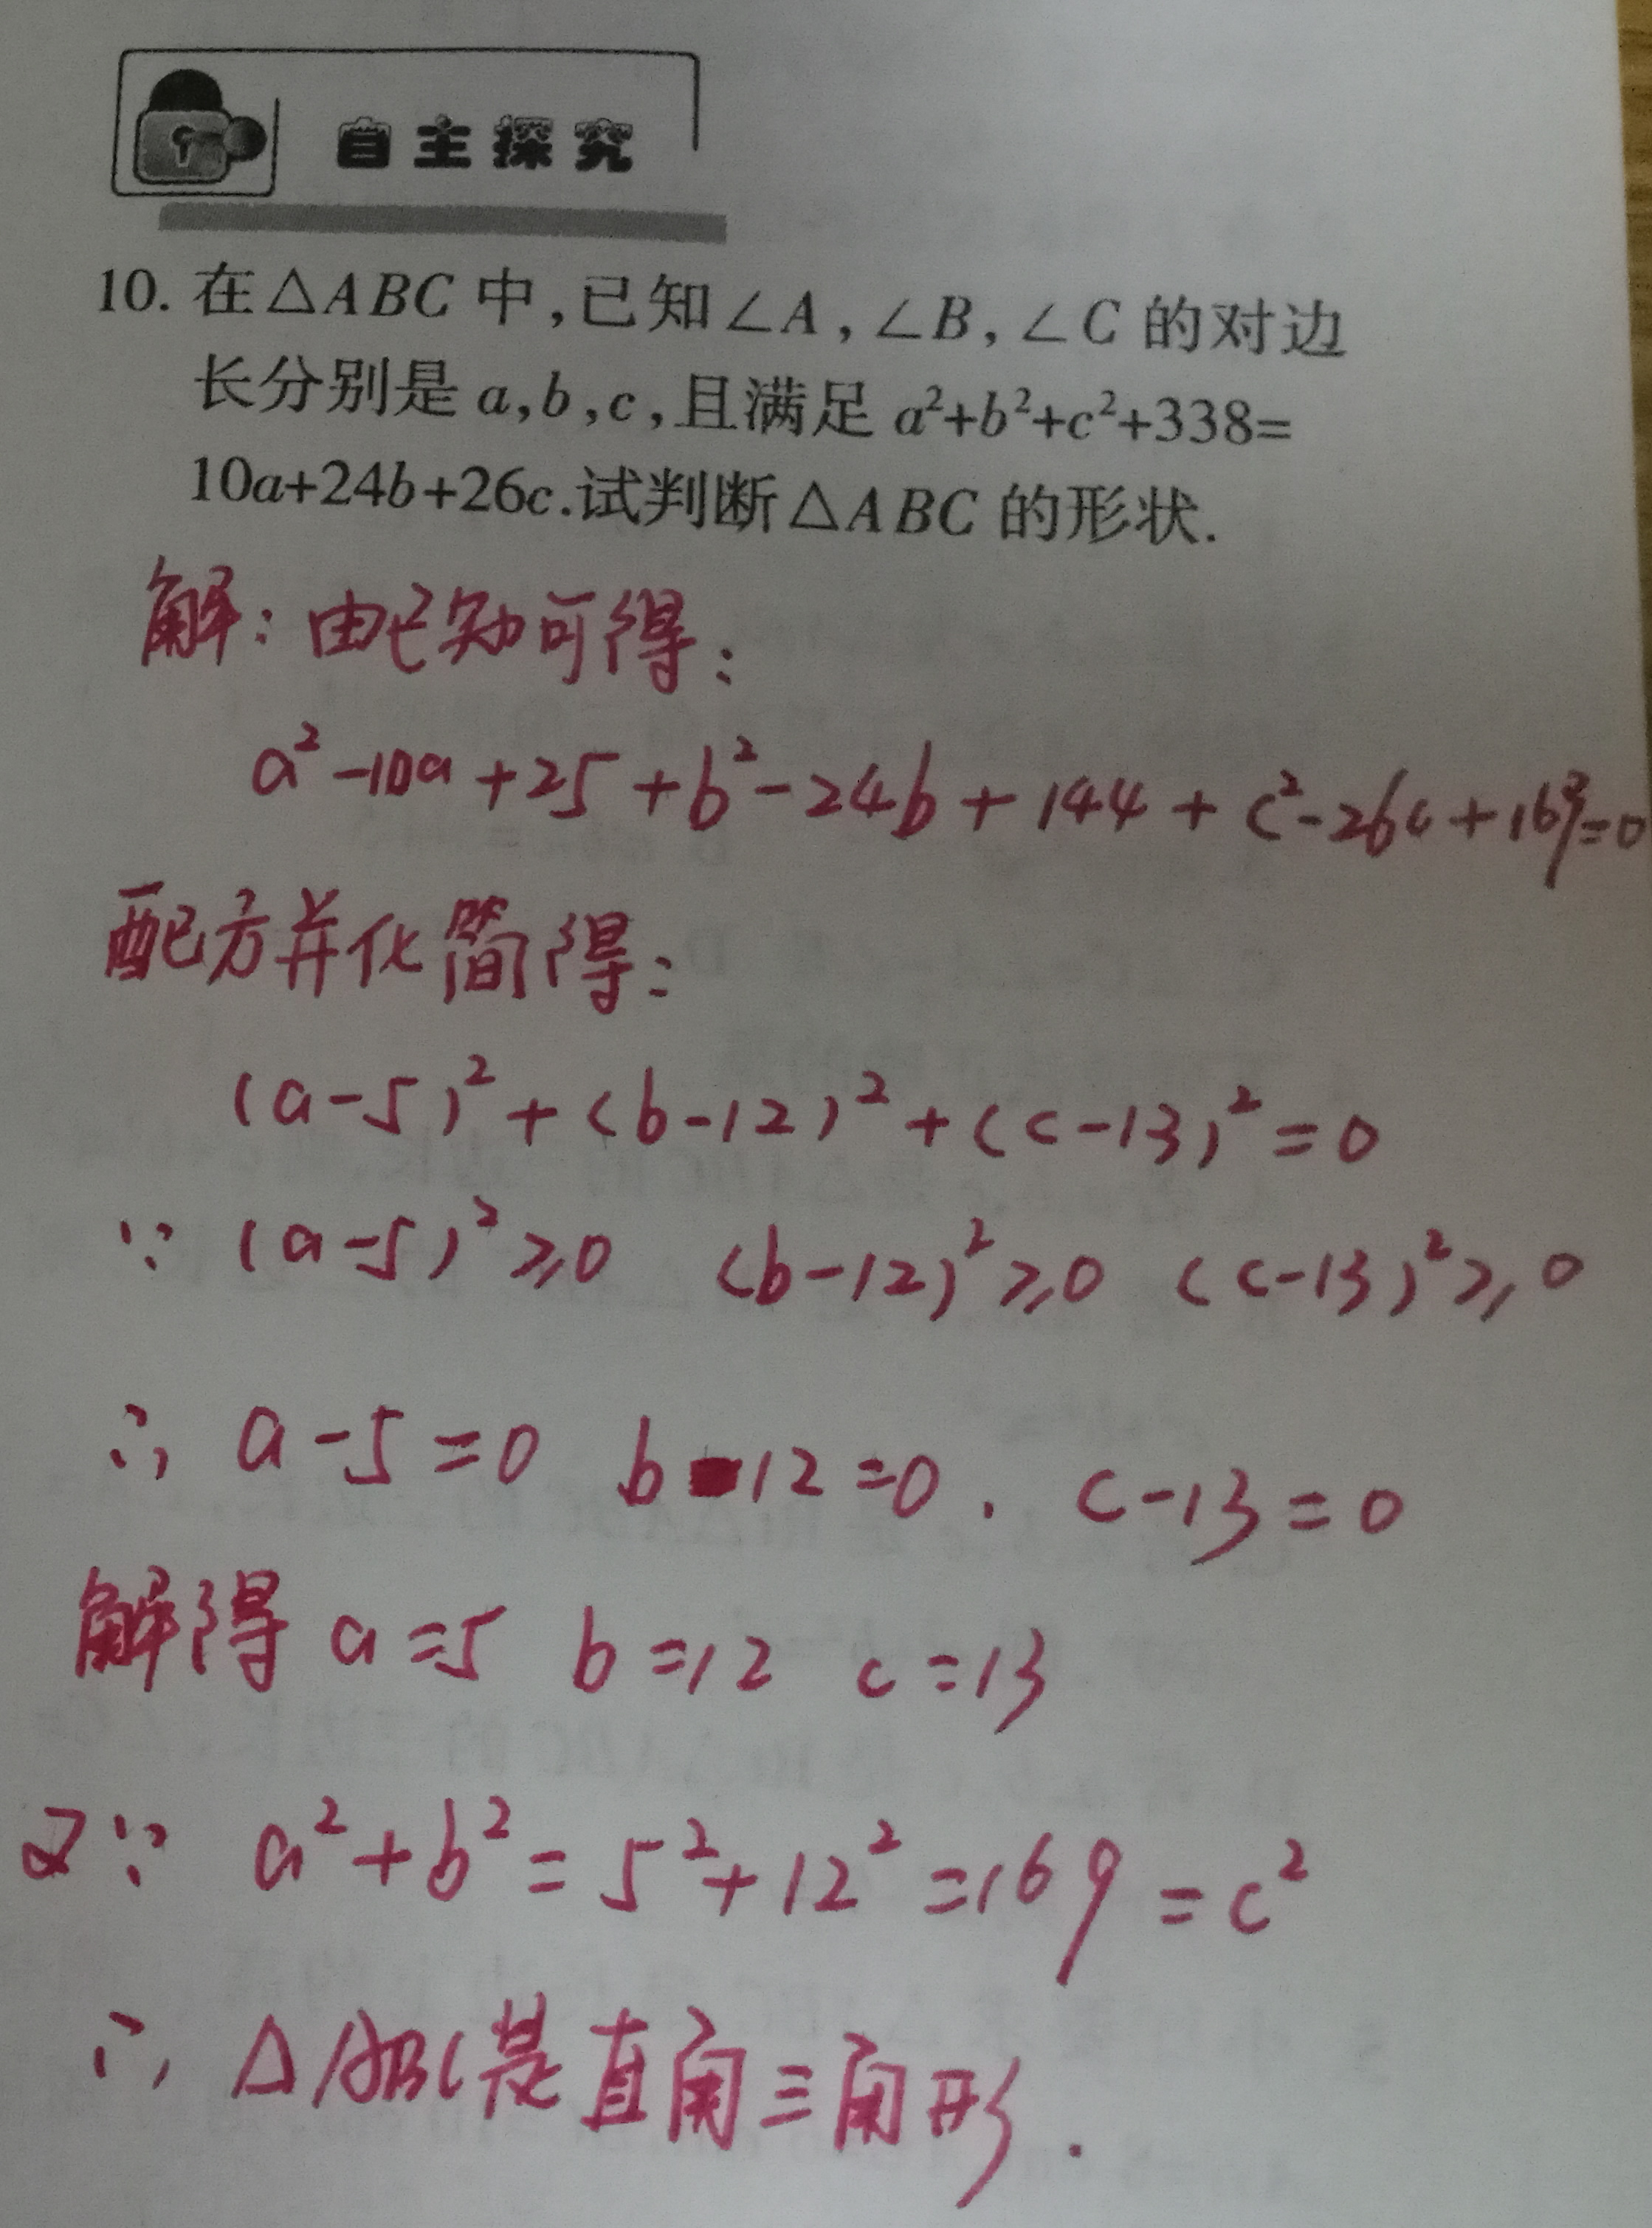 自主探究
10. 在△ABC中,已知∠A,∠B,∠C的对边
长分别是a,b,c,且满足a²+b²+c²+338=
10a+24b+26c.试判断△ABC的形状.
解:由已知可得:
a²-10a+25+b²-24b+144+c²-26c+169=0
配方并化简得:
(a-5)²+(b-12)²+(c-13)²=0
∵ (a-5)²≥0 (b-12)²≥0 (c-13)²≥0
∴ a-5=0 b-12=0. c-13=0
解得 a=5 b=12 c=13
又∵ a²+b²=5²+12²=169=c²
∴ △ABC是直角三角形.